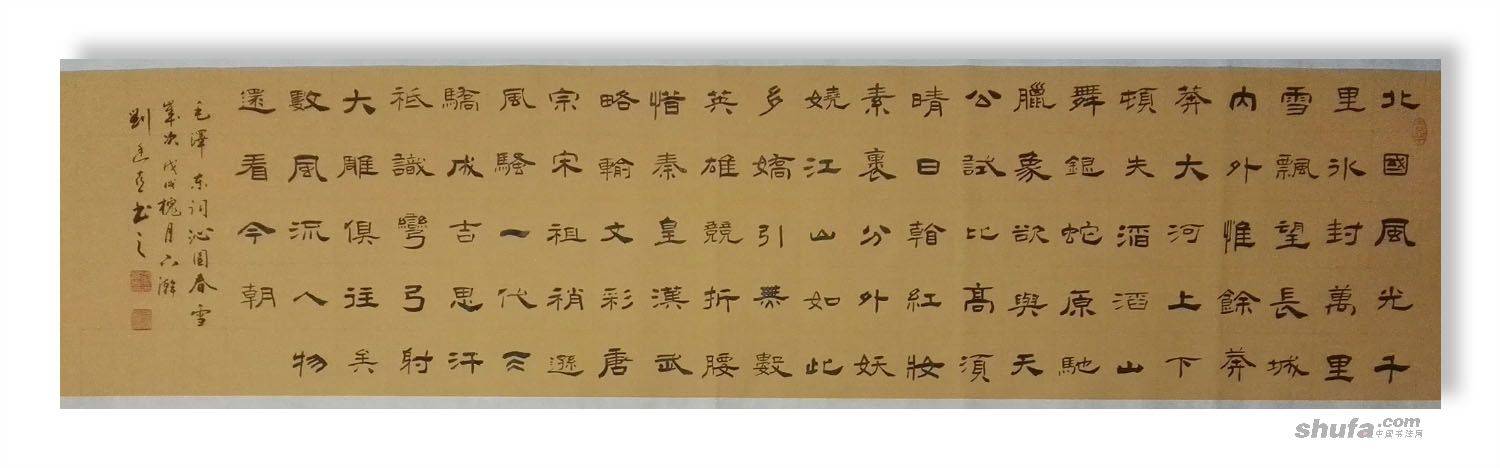 北國風光千
里冰封萬里
雪飄望長城
內外惟餘莽
莽大河上下
頓失滔滔山
舞銀蛇原馳
臘象欲與天
公試比高須
晴日翰紅妝
素裹分外妖
嬈江山如此
多嬌引無數
英雄競折腰
惜秦皇漢武
略輸文彩唐
宗宋祖稍遜
風騷一代天
驕成吉思汗
祗識彎弓射
大雕俱往矣
數風流人物
還看今朝
毛澤东词沁園春雪
歲次戊戌槐月六瀚
劉書之
shufa.com
中国书法网